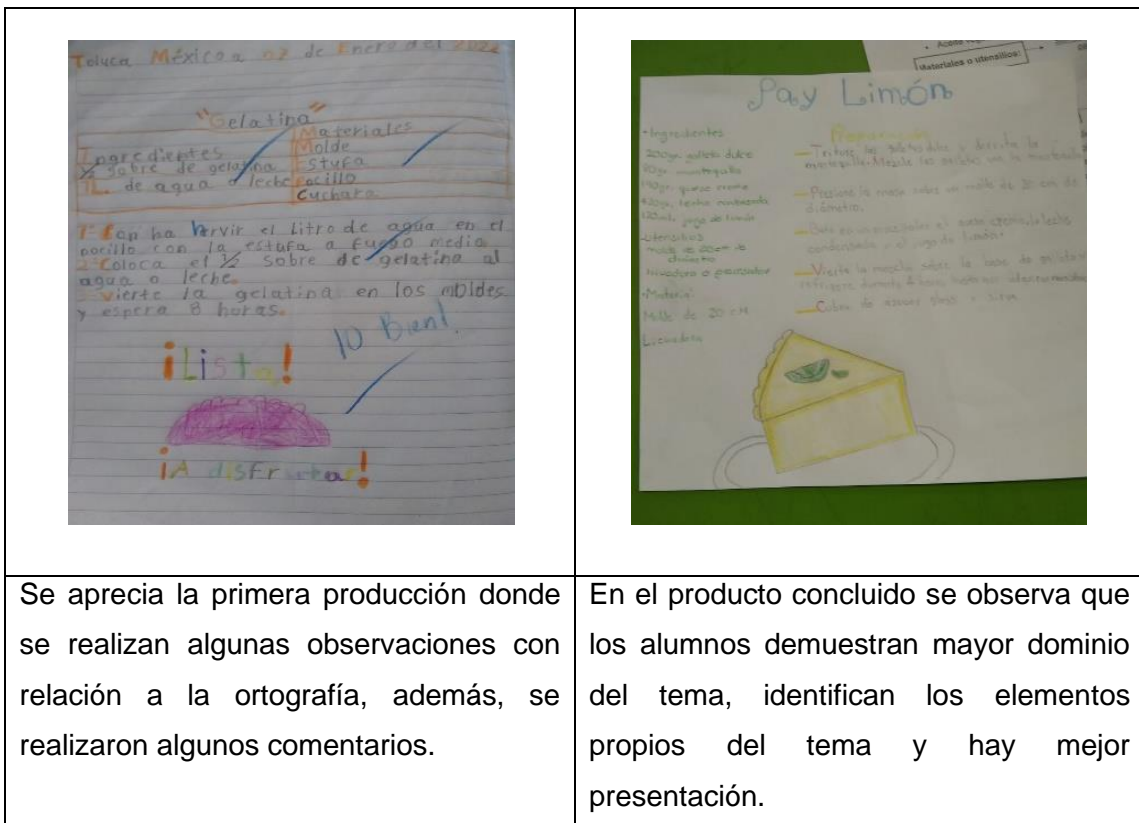 Toluca México a 07 de Enero del 2022
"Gelatina"
Ingredientes
½ sobre de gelatina
1L. de agua o leche
Materiales
Molde
Estufa
Pocillo
Cuchara
1- Pon ha hervir el litro de agua en el
pocillo con la estufa a fuego medio
2-Coloca el ½ sobre de gelatina al
agua o leche.
3-Vierte la gelatina en los moldes
y espera 8 horas.
10 Bien!
¡Listo!
¡A disfrutar!
Materiales o utensilios:
Pay Limón
•Ingredientes
200gr. galleta dulce
90gr. mantequilla
190gr. queso crema
120ml. jugo de limón
-Utensilios
molde de 20cm de
diámetro
-Material
Molde de 20 cm
Licuadora
Preparación
—Triture las galletas dulce y derrita la
mantequilla. Mezcle las galletas con la mantequilla
—Presione la masa sobre un molde de 20 cm de
diámetro.
—Bata en un procesador el queso crema, la leche
condensada y el jugo de limón.
—Vierte la mezcla sobre la base de galletas
refrigere durante 4 horas
—Cubra de azucar glass
Se aprecia la primera producción donde
se realizan algunas observaciones con
relación a la ortografía, además, se
realizaron algunos comentarios.
En el producto concluido se observa que
los alumnos demuestran mayor dominio
del tema, identifican los elementos
propios del tema y hay mejor
presentación.